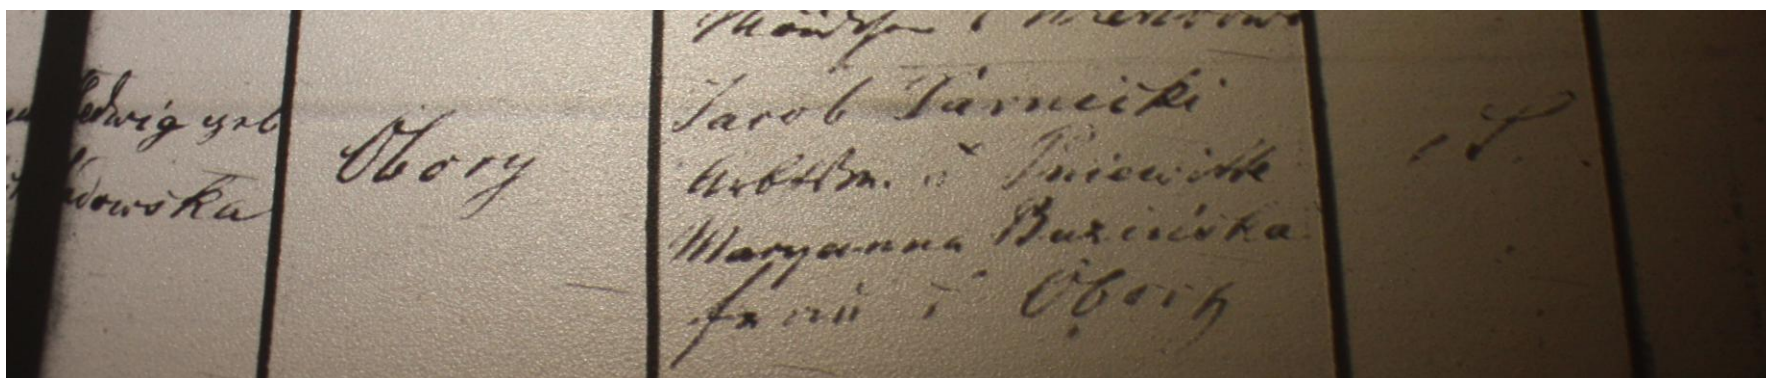 Mädchen
Hedwig geb
dowska
Obory
Jacob Tarnicki
Arbtsm. i Pniewitte
Maryanna Buzińska
frau i Obory